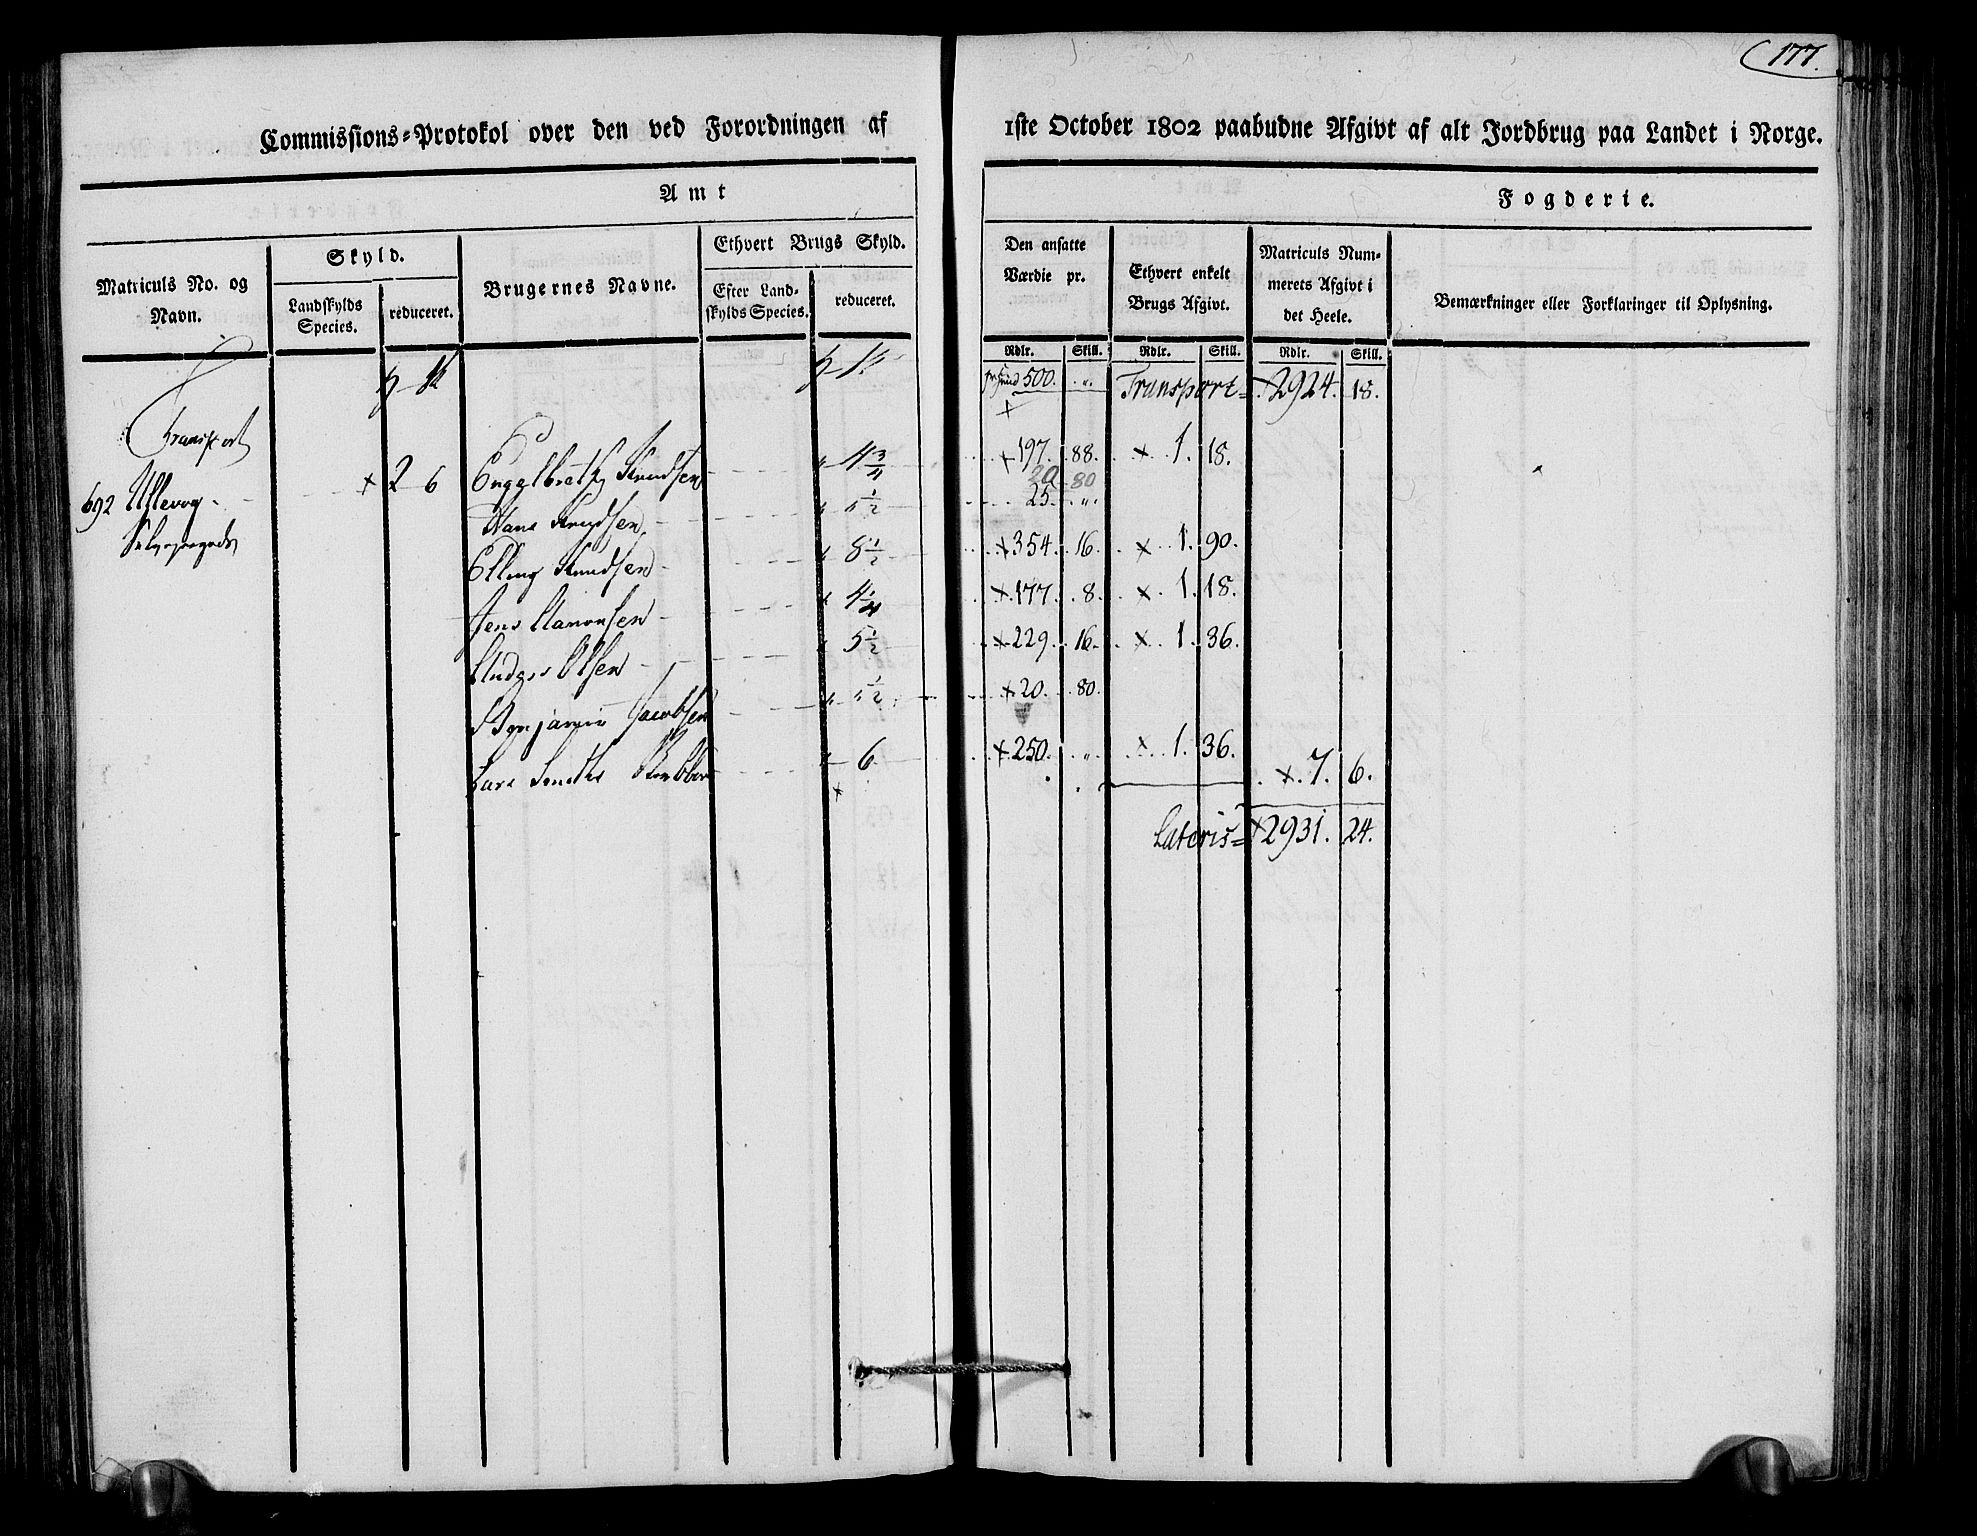 177.
Commissions-Protokol over den ved Forordningen af 1ste October 1802 paabudne Afgivt af alt Jordbrug paa Landet i Norge.
Amt Fogderie.
Matriculs No. og Navn. Skyld. Landskylds Species. reduceret. Brugernes Navne. Ethvert Brugs Skyld. Efter Landskylds Species. reduceret. Den ansatte Værdie pr. Ethvert enkelt Brugs Afgivt. Matriculs Nummerets Afgivt i det Heele. Bemærkninger eller Forklaringer til Oplysning.
Rdlr. Skill. Rdlr. Skill. Rdlr. Skill.
500. „ Transport = 2924. 18.
Transport
692 Ullevog - × 2 6 Engelbreth Knudsen „ 4 3/4 × 197. 88. × 1. 18.
20 80
Selveyergods Hans Knudsen „ 1/2 25 „
Elling Knudsen „ 8 1/2 × 354. 16. × 1. 90.
Jens Aanonsen „ 4 1/4 × 177. 8. × 1. 18.
Anders Olsen „ 5 1/2 × 229. 16. × 1. 36.
Benjamin Jacobsen „ 1/2 × 20. 80.
Lars Smiths „ 6 × 250. „ × 1. 36.
× 7. 6.
Lateris = × 2931. 24.